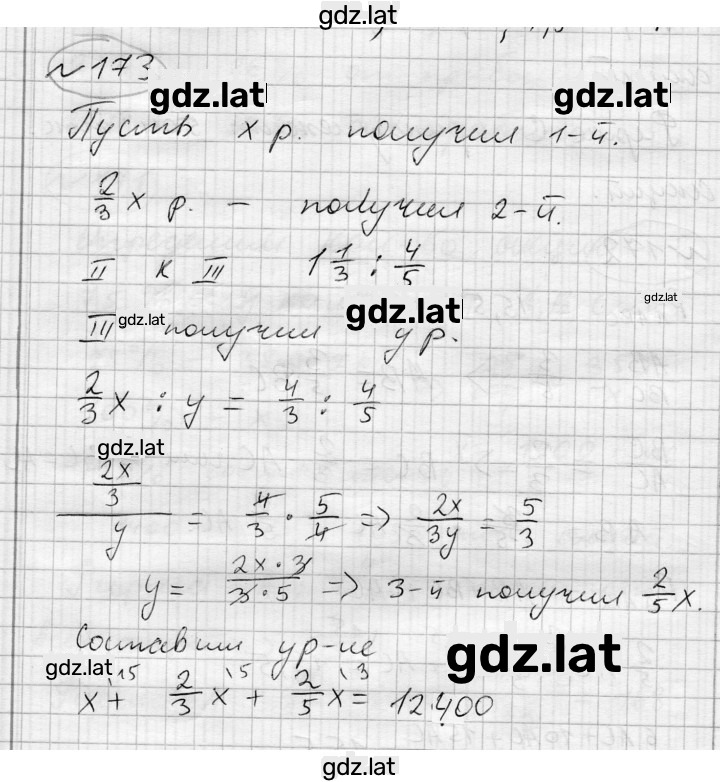 gdz.lat
№ 173
gdz.lat gdz.lat
Пусть x р. получил 1-й.
2/3 x р. – получил 2-й.
II к III 1 1/3 : 4/5
gdz.lat
III gdz.lat получил y р. gdz.lat
2/3 x : y = 4/3 : 4/5
gdz.lat
(2x/3)/y = 4/3 · 5/4 => 2x/3y = 5/3
y = 2x·3/3·5 => 3-й получил 2/5 x.
Составим ур-ие
gdz.lat gdz.lat
x\15 + 2/3 x\5 + 2/5 x\3 = 12400
gdz.lat